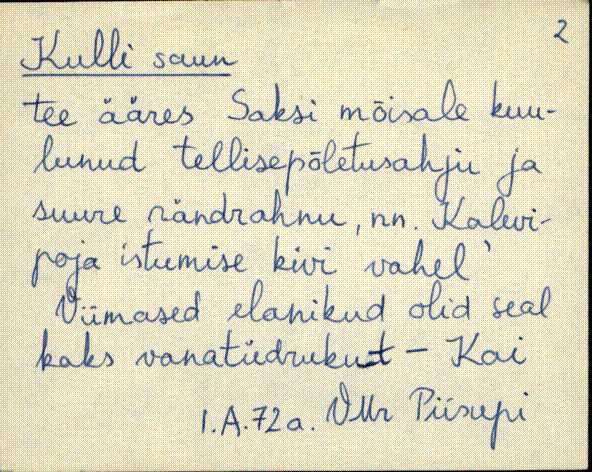 2
Kulli saun
tee ääres Saksi mõisale kuu-
lunud tellisepõletusahju ja
suure rändrahnu, nn. Kalevi-
poja istumise kivi vahel'
Viimased elanikud olid seal
kaks vanatüdrukut - Kai
1.A.72a. Piisupi